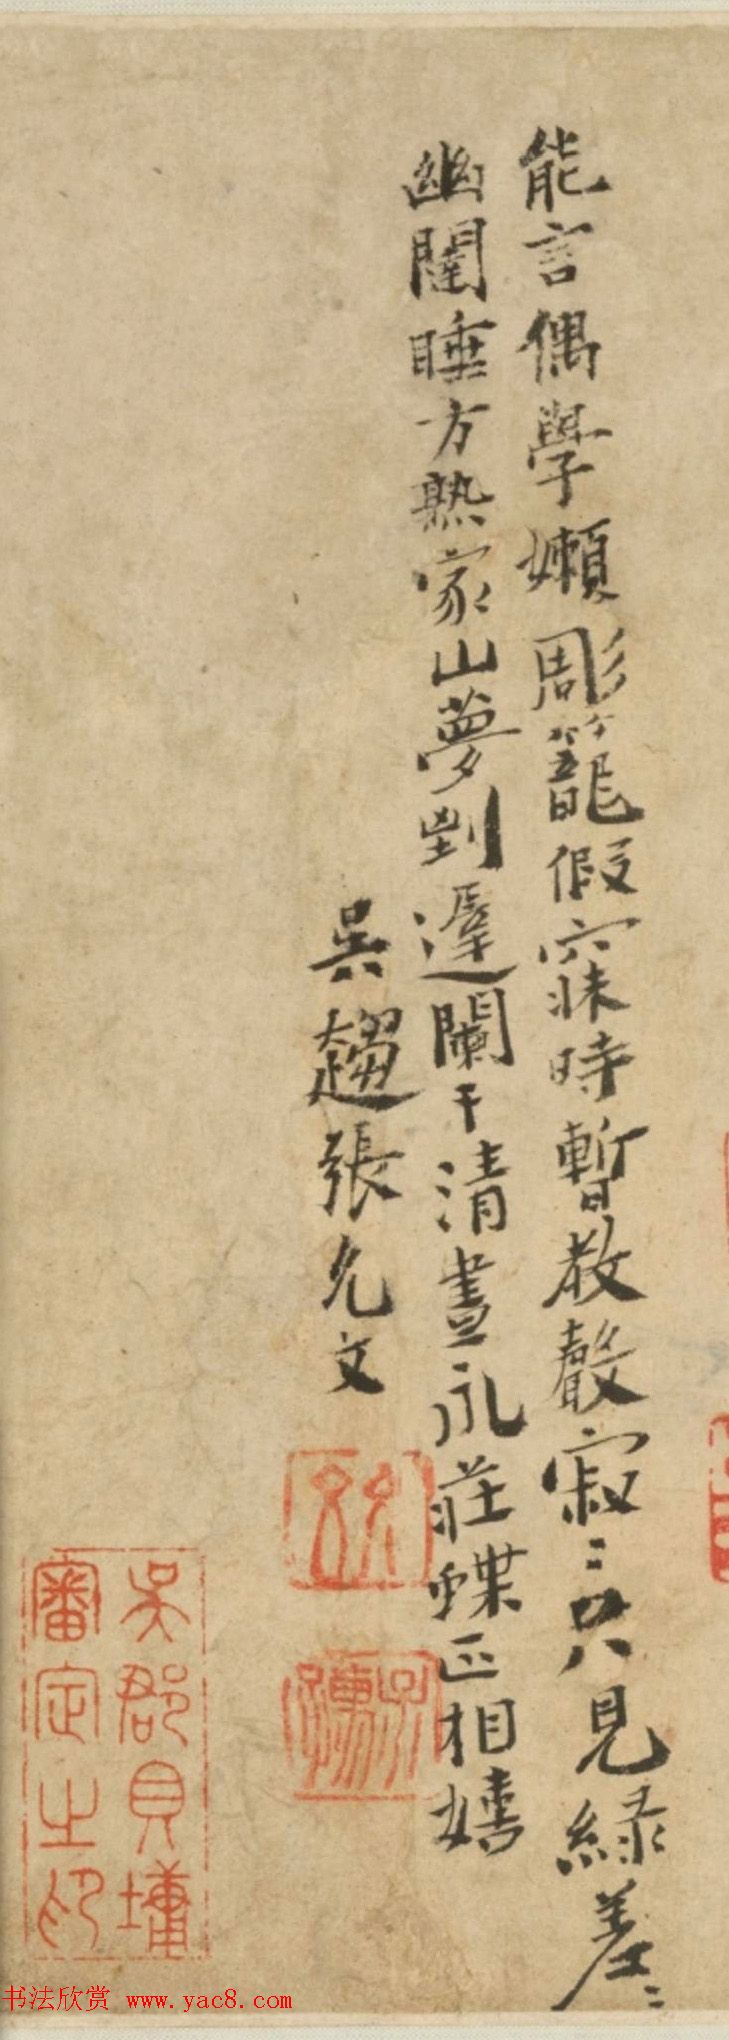 能言偶學嬾彫籠假寐時暫教聲寂〻只見綠差〻
幽閨睡方熟家山夢到遲闌干清晝永莊蝶正相嬉
吳趨張允文
吳郡貝墉
審定之印
书法欣赏 www.yac8.com